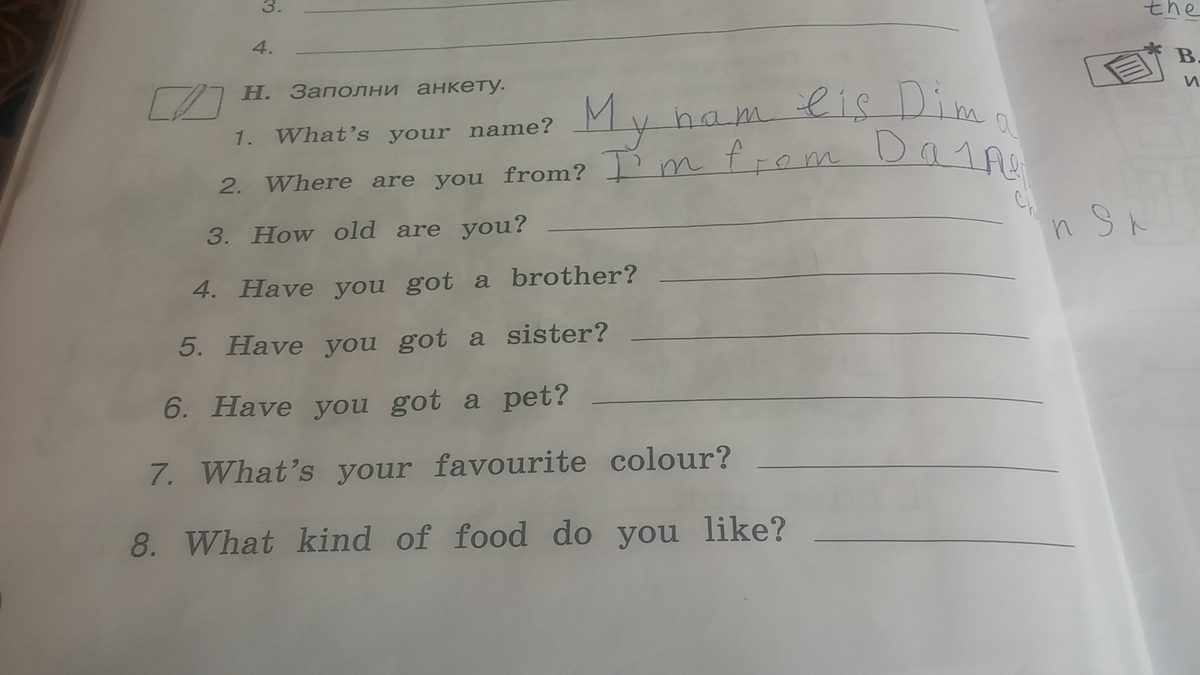 the
3.
4.
В.
и
H. Заполни анкету.
1. What's your name? My nam eis Dima
2. Where are you from? I'm from
3. How old are you?
4. Have you got a brother?
5. Have you got a sister?
6. Have you got a pet?
7. What's your favourite colour?
8. What kind of food do you like?